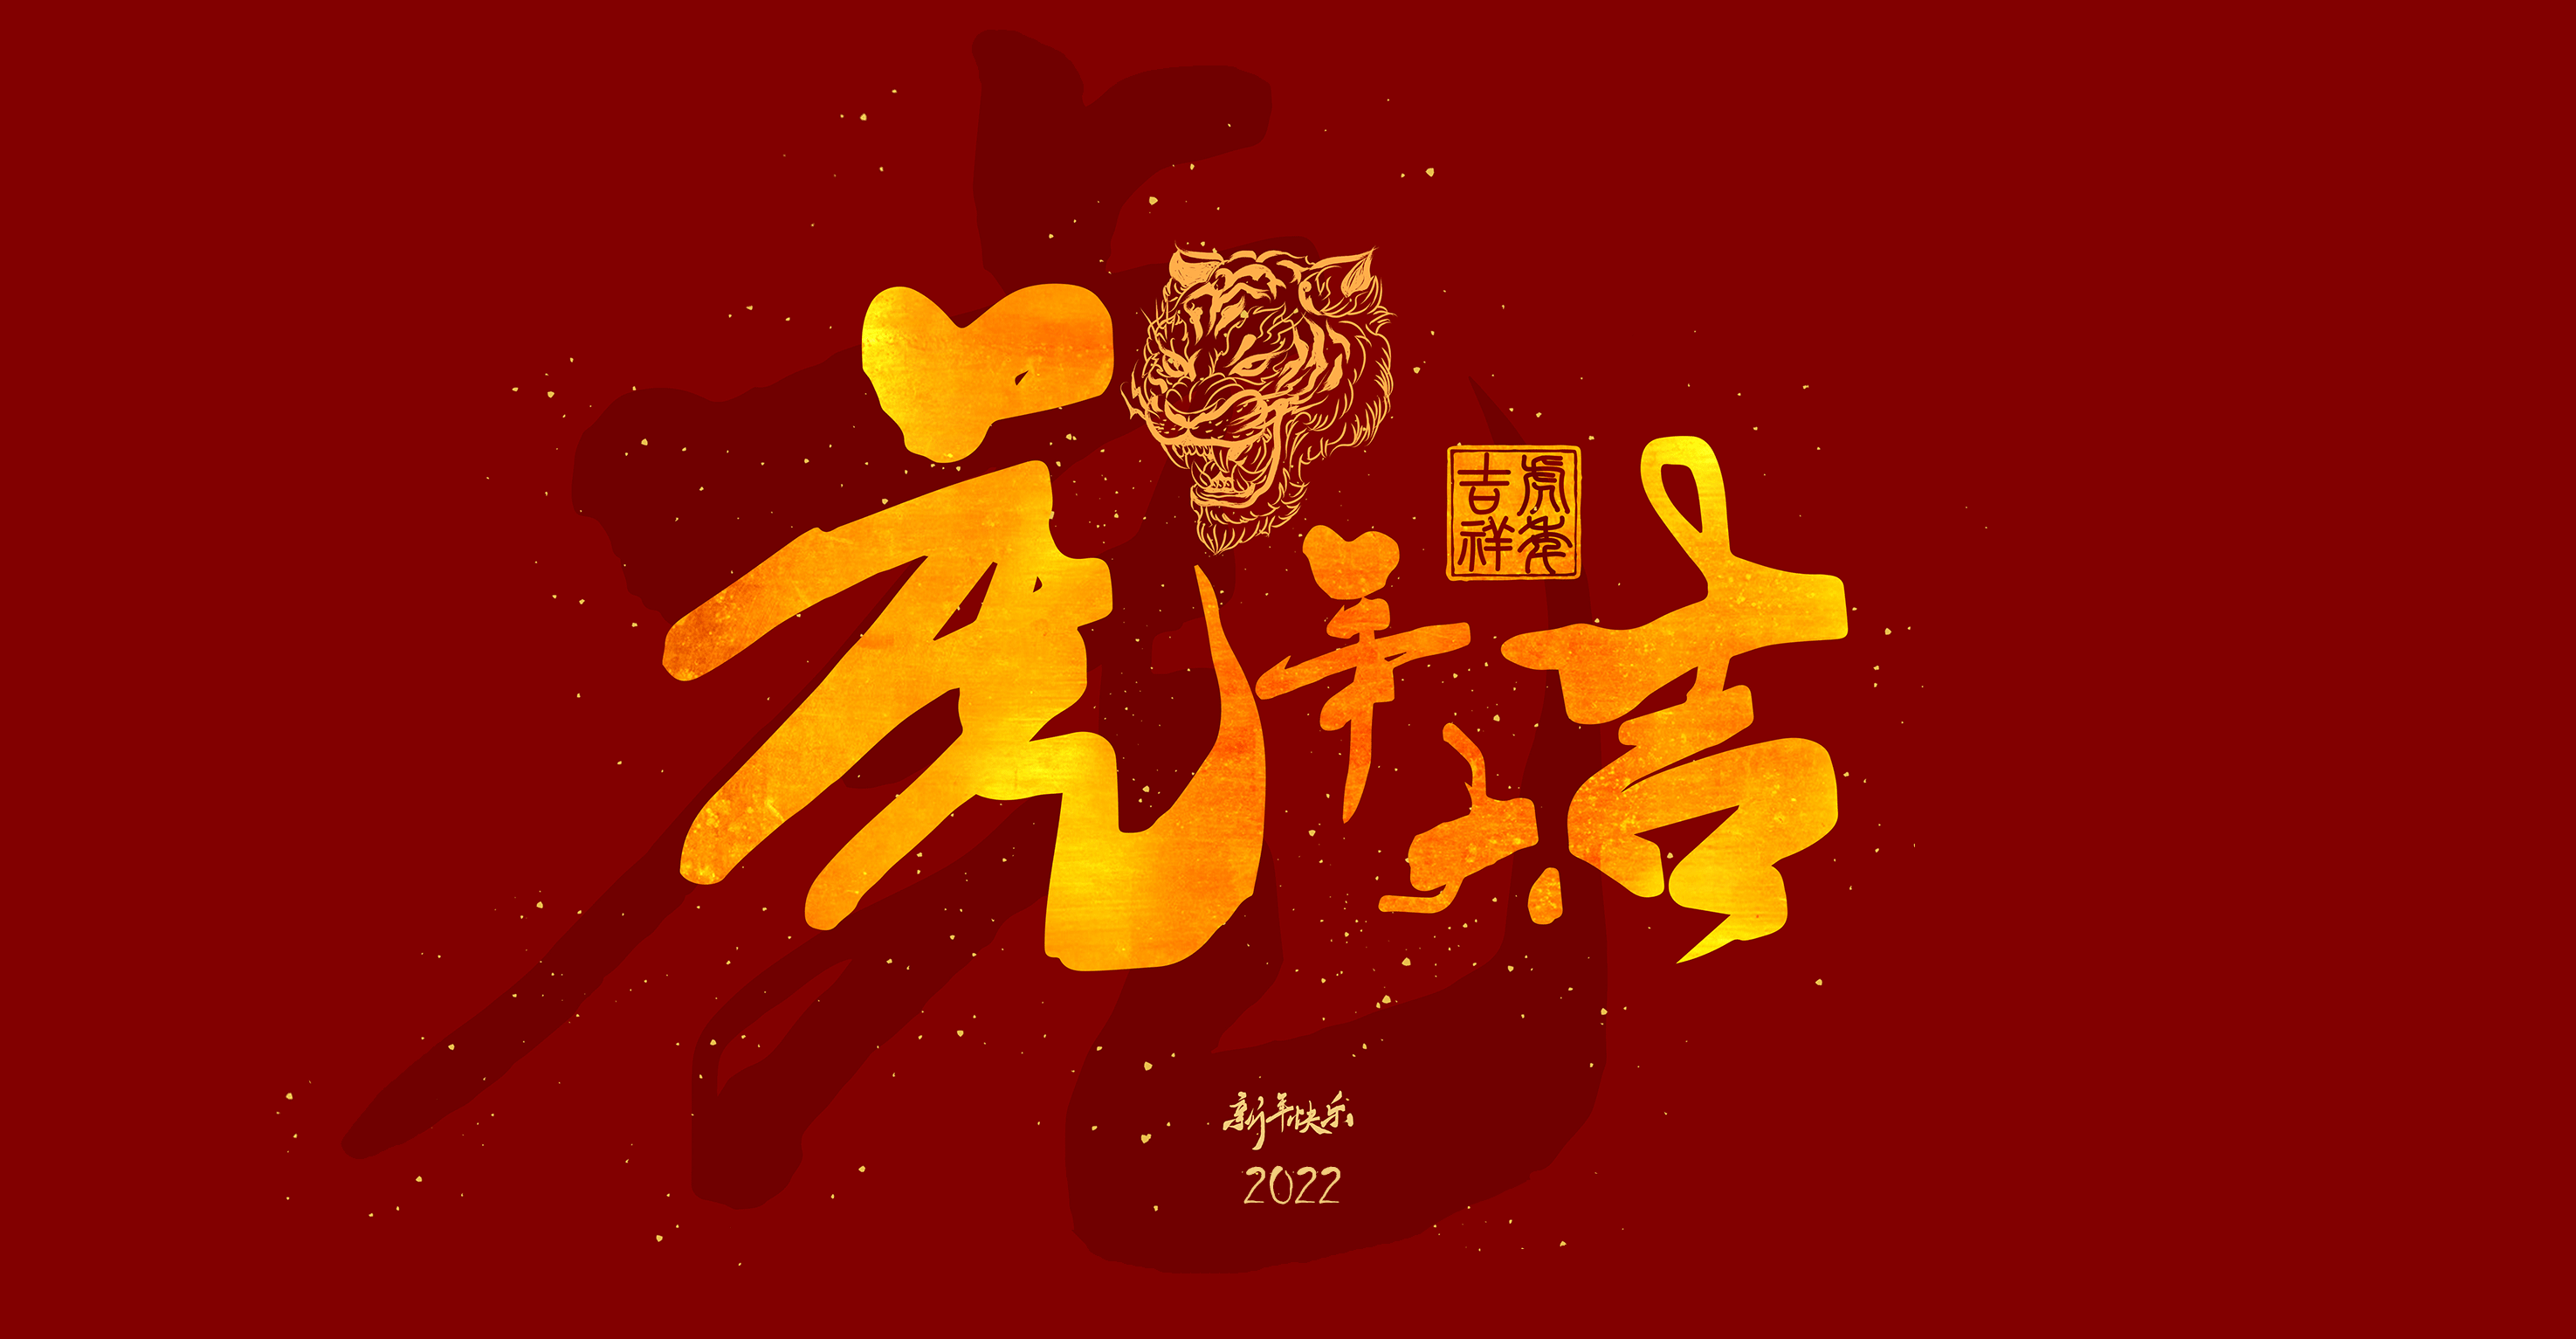 虎年大吉
虎年吉祥
新年快乐
2022